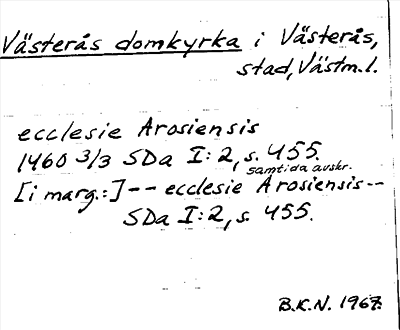 Västerås domkyrka i Västerås,
stad, Västm.l.
ecclesie Arosiensis
1460 3/3 SDa I:2, s. 455.
samtida avskr.
[i marg.:] -- ecclesie Arosiensis --
SDa I:2, s. 455.
B.K.N. 1967.